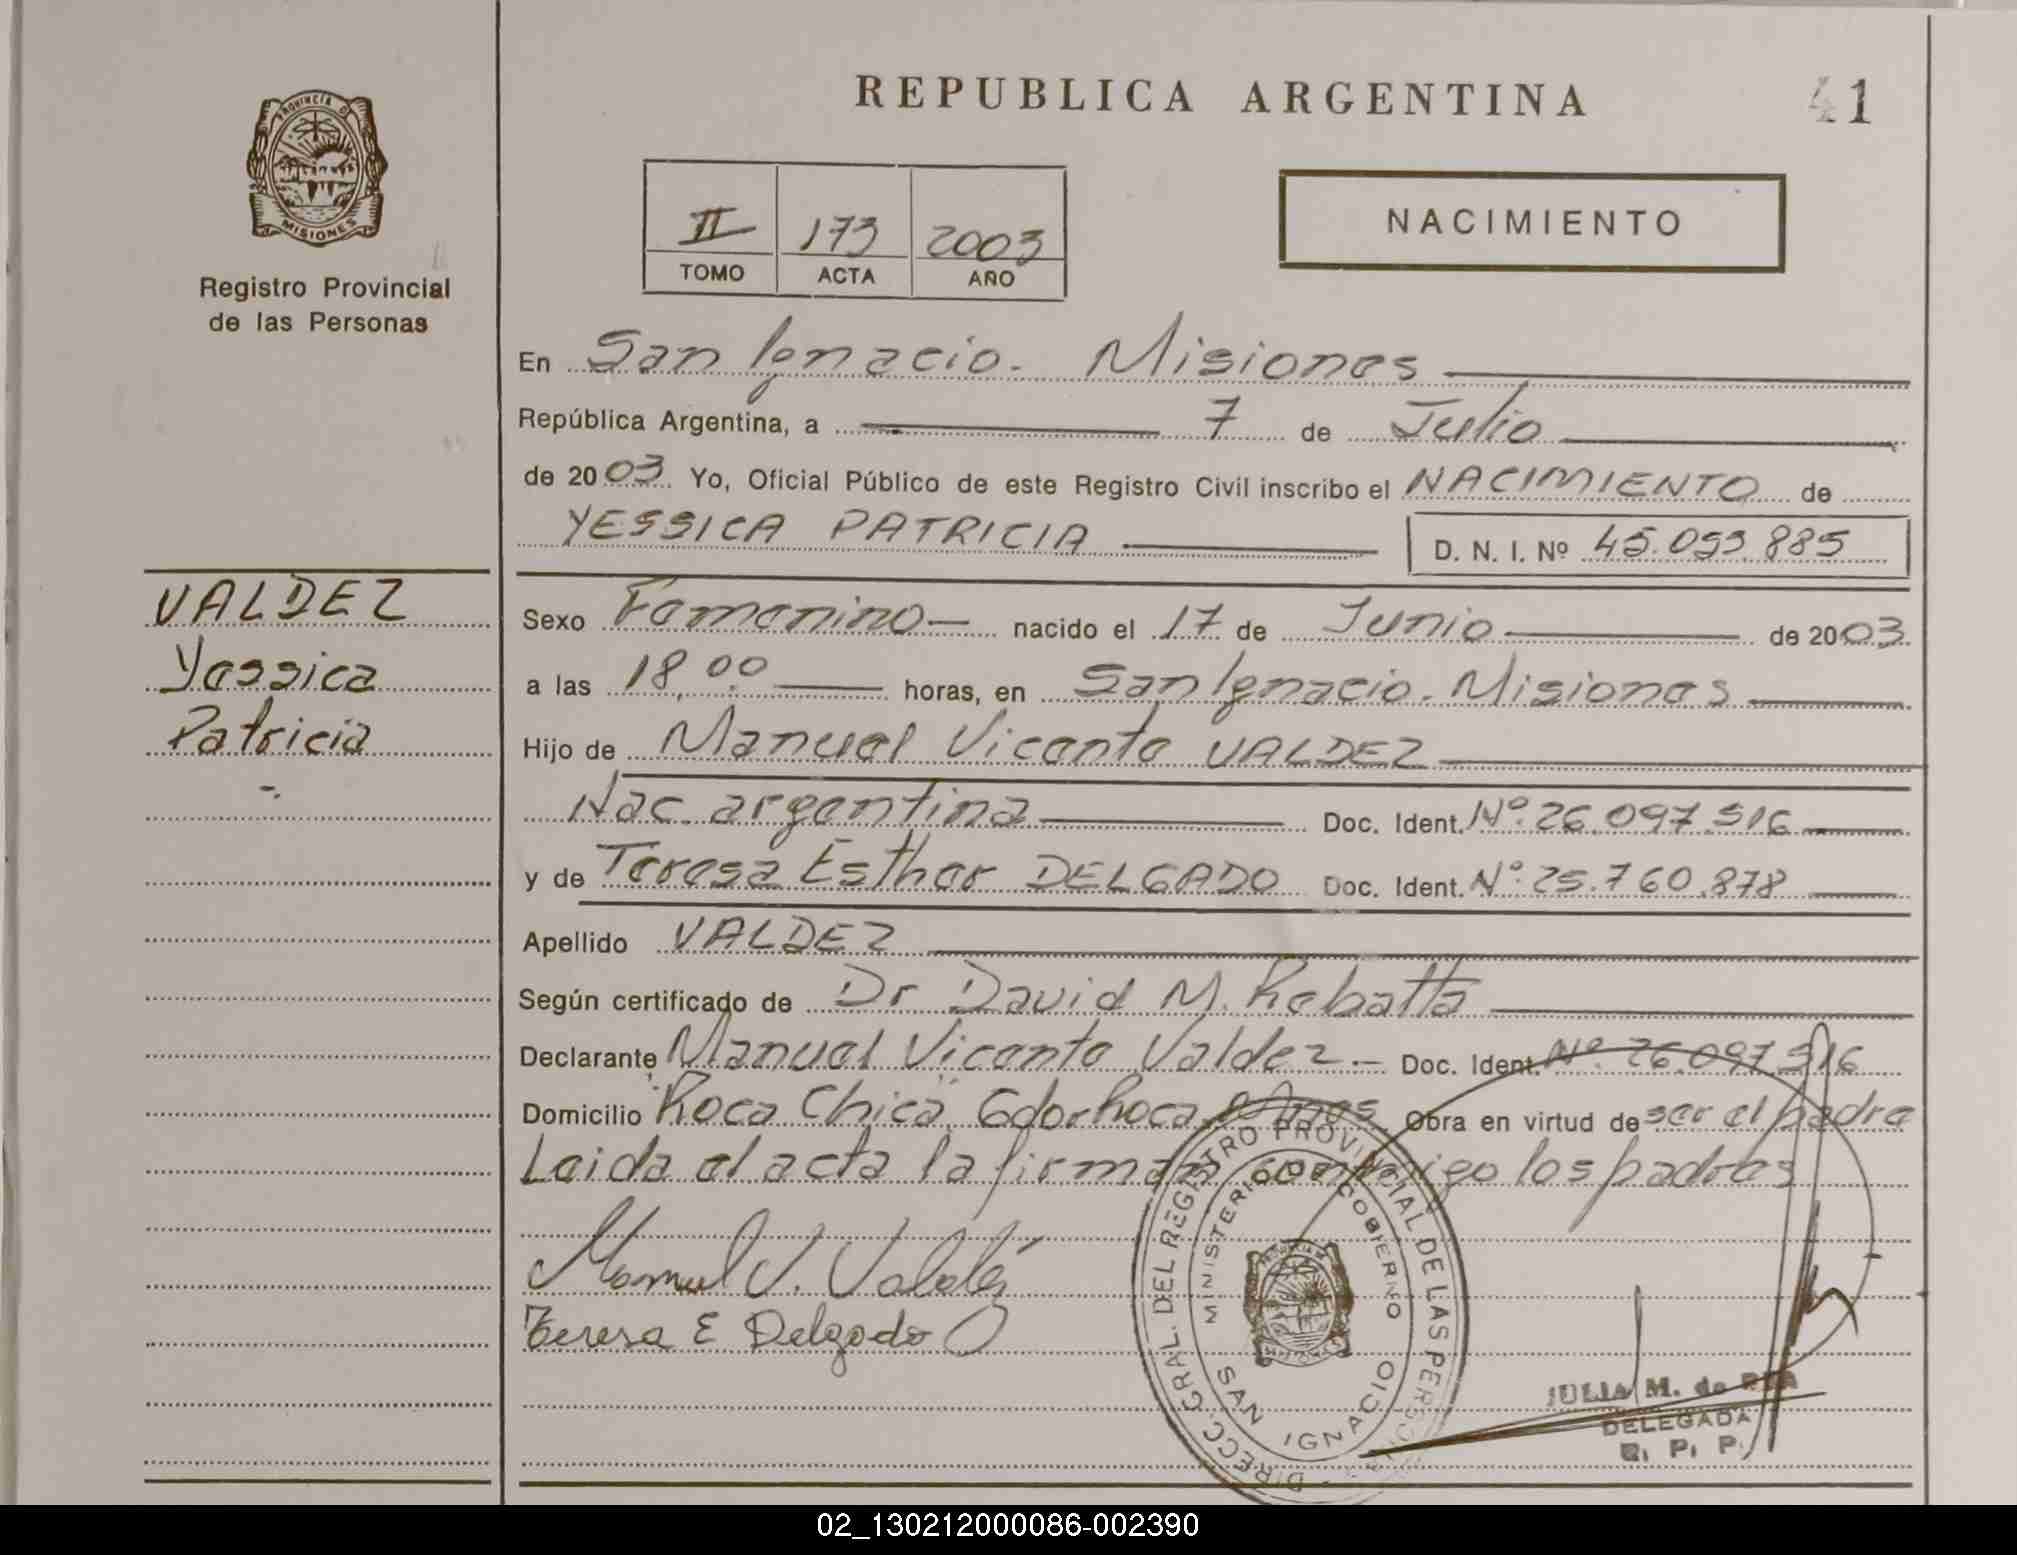 REPUBLICA ARGENTINA
41
PROVINCIA DE MISIONES
Registro Provincial
de las Personas
II 173 2003
TOMO ACTA AÑO
NACIMIENTO
En San Ignacio. Misiones
República Argentina, a 7 de Julio
de 2003 Yo, Oficial Público de este Registro Civil inscribo el NACIMIENTO de
YESSICA PATRICIA D. N. I. Nº 45.093.885
VALDEZ
Yessica
Patricia
Sexo Femenino nacido el 17 de Junio de 2003
a las 18,00 horas, en San Ignacio. Misiones
Hijo de Manuel Vicente VALDEZ
Nac. argentina Doc. Ident. Nº. 26.097.516
y de Teresa Esther DELGADO Doc. Ident. Nº. 25.760.878
Apellido VALDEZ
Según certificado de Dr David M. Rebatta
Declarante Manuel Vicente Valdez.- Doc. Ident. Nº. 26.097.516
Domicilio "Roca Chica" Gdor Roca Mnes Obra en virtud de ser el padre
Leida el acta la firman conmigo los padres
Manuel V. Valdéz
Teresa E Delgado
DIRECC. GRAL. DEL REGISTRO PROVINCIAL DE LAS PERSONAS
MINISTERIO DE GOBIERNO
SAN IGNACIO
JULIA M. de
DELEGADA
R. P. P.
02_130212000086-002390